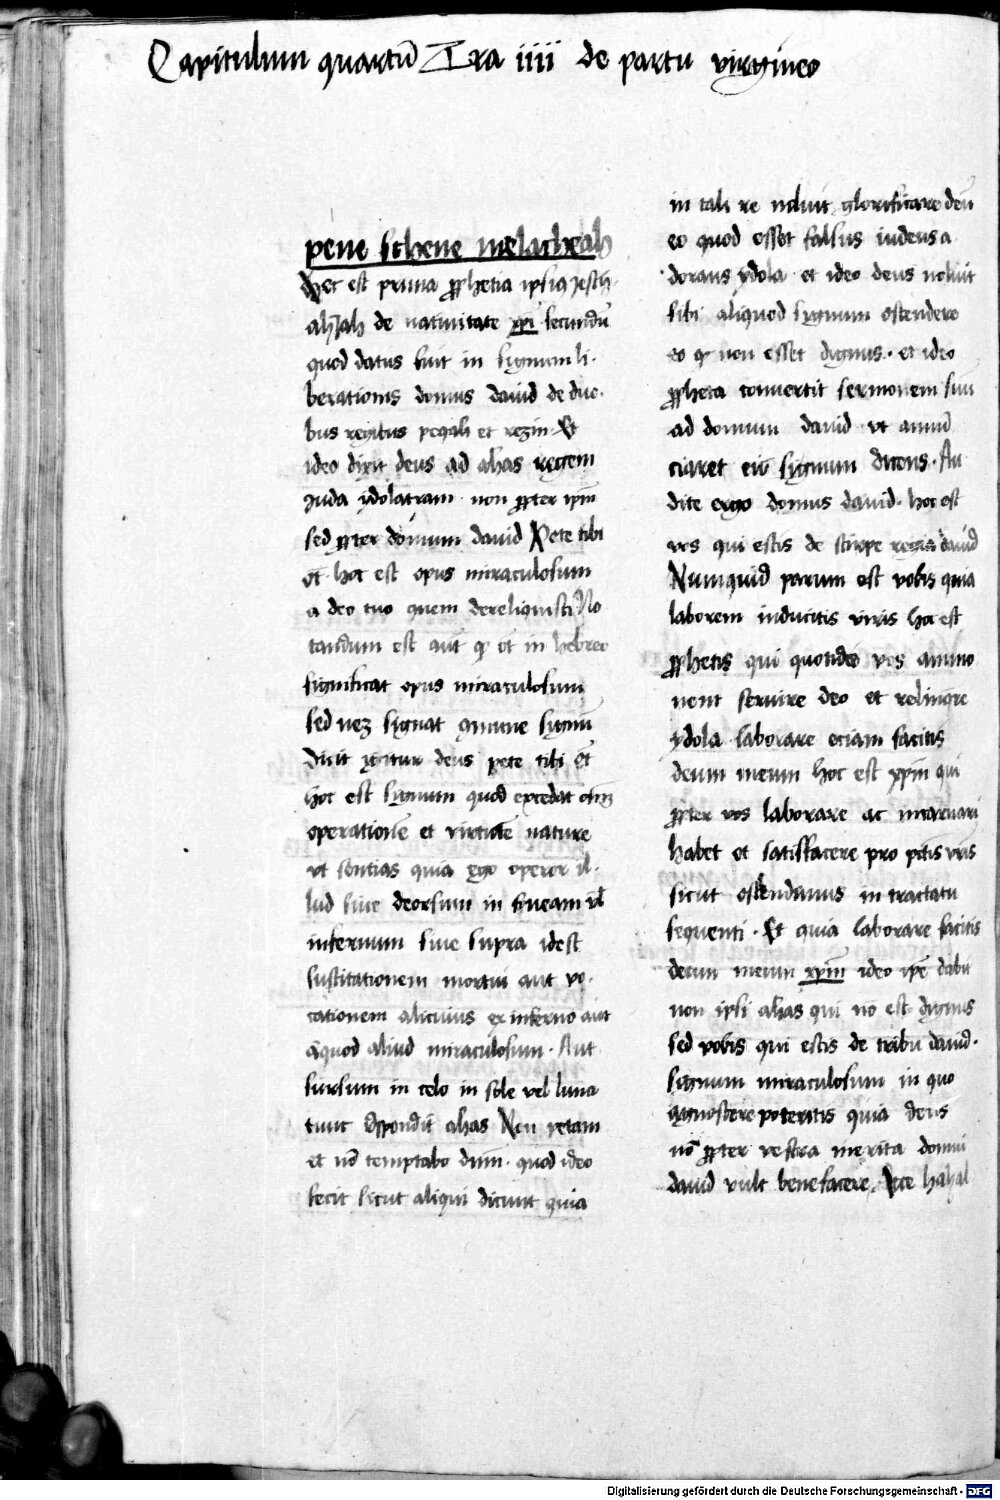 Capitulum quartū Lra iiii de partu virgineo
pene schene melacheah
Hec est prima ꝓphetia ipsiꝯ Jesch-
ahJah de natiuitate xp̄i secundū
quod datus fuit in signum li-
berationis domus dauid de duo-
bus regibus et rezin Et
ideo dixit deus ad ahas regem
Juda ydolatram non ꝓpter ipm̄
sed ꝓpter domum dauid Pete tibi
ot hoc est opus miraculosum
a deo tuo quem dereliquisti No
tandum est aūt ꝙ ot in hebreo
significat opus miraculosum
sed neꝫ signat ꝯmune signū
Dicit igitur deus pete tibi ot
hoc est signum quod excedat om̄ꝫ
operationē et virtutē nature
vt sentias quia ego operor il-
lud siue deorsum in foueam vl̄
infernum siue supra idest
suscitationem mortui aut vo-
cationem alicuius ex inferno aut
aliquod aliud miraculosum. Aut
sursum in celo in sole vel luna
tunc respondit ahas Non petam
et nō temptabo dnm̄. quod ideo
fecit sicut aliqui dicunt quia
in tali re noluit glorificare deū
eo quod esset falsus iudeus a
dorans ydola et ideo deus noluit
sibi aliquod signum ostendere
eo ꝙ non esset dignus. et ideo
ꝓpheta conuertit sermonem suū
ad domum dauid vt annū
ciaret eis signum dicens. Au
dite ergo domus dauid. hoc est
vos qui estis de stirpe regis dauid
Numquid parum est vobis quia
laborem inducitis viris hoc est
ꝓphetis qui quotidie vos ammo
nent seruire deo et relinqre
ydola laborare eciam facitis
deum meum hoc est xpm̄ qui
ꝓpter vos laborare ac incarnari
habet et satisfacere pro pctis vris
sicut ostendamus in tractatu
sequenti. Et quia laborare facitis
deum meum xpm̄ ideo ipē dabit
non ipsi ahas qui nō est dignus
sed vobis qui estis de tribu dauid.
signum miraculosum in quo
ꝯgnoscere poteritis quia deus
nō ꝓpter vestra merita domui
dauid vult benefacere. Ecce hahal
Digitalisierung gefördert durch die Deutsche Forschungsgemeinschaft - DFG